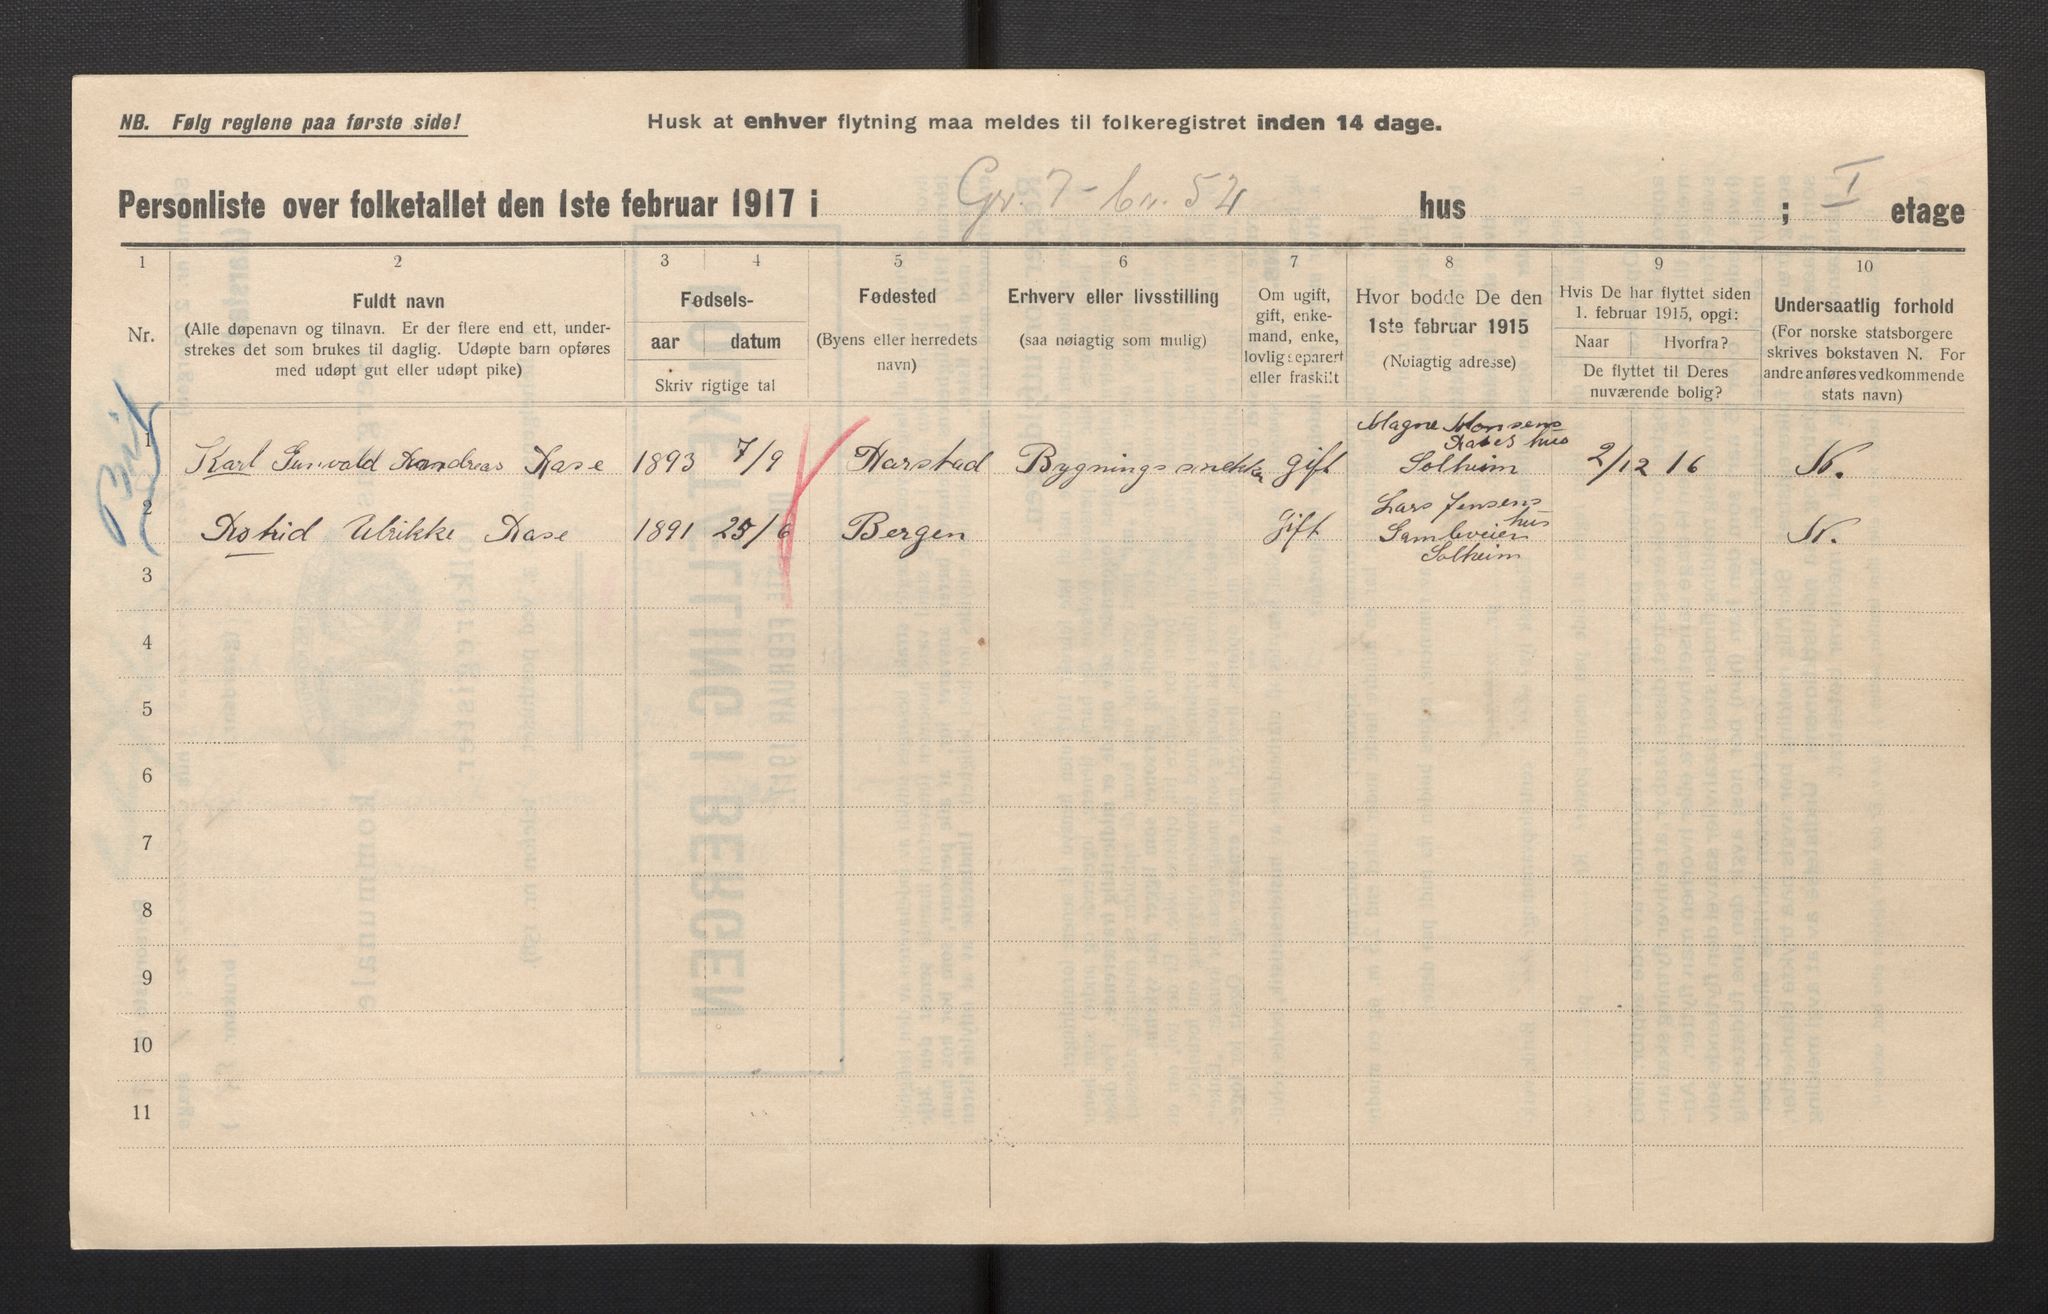 NB. Følg reglene paa første side!
Husk at enhver flytning maa meldes til folkeregistret inden 14 dage.
Personliste over folketallet den 1ste februar 1917 i Gr. 7 - br. 54 hus ; I etage
1 2 3 4 5 6 7 8 9 10
Nr.
Fuldt navn
(Alle døpenavn og tilnavn. Er der flere end ett, under-
strekes det som brukes til daglig. Udøpte barn opføres
med udøpt gut eller udøpt pike)
Fødsels-
aar datum
Skriv rigtige tal
Fødested
(Byens eller herredets
navn)
Erhverv eller livsstilling
(saa nøiagtig som mulig)
Om ugift,
gift, enke-
mand, enke,
lovlig separert
eller fraskilt
Hvor bodde De den
1ste februar 1915
(Nøiagtig adresse)
Hvis De har flyttet siden
1. februar 1915, opgi:
Naar Hvorfra?
De flyttet til Deres
nuværende bolig?
Undersaatlig forhold
(For norske statsborgere
skrives bokstaven N. For
andre anføres vedkommende
stats navn)
Magne Monsens
hus
1 Karl Gunvald Andreas Aase 1893 7/9 Harstad Bygningssnekker gift Solheim 2/12 16 N.
Lars Jensens
hus
2 Astrid Ulrikke Aase 1891 25/6 Bergen Gift Gamleveien N.
Solheim
3
4
5
6
7
8
9
10
11